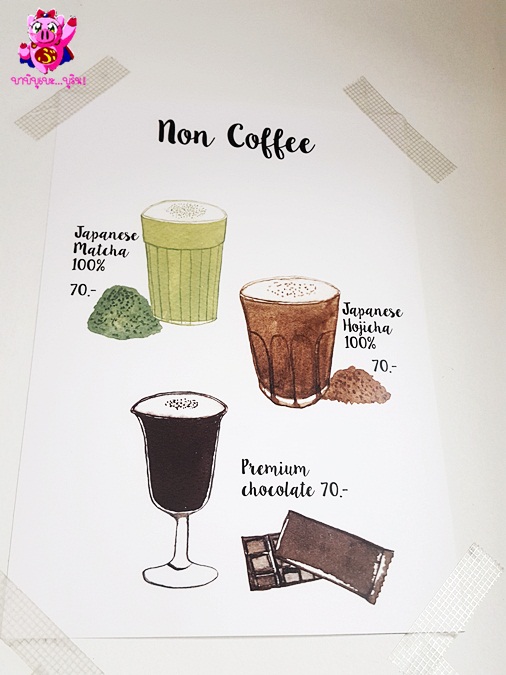 Non Coffee
Japanese
Matcha
100%
70.-
Japanese
Hojicha
100%
70.-
Premium
chocolate 70.-